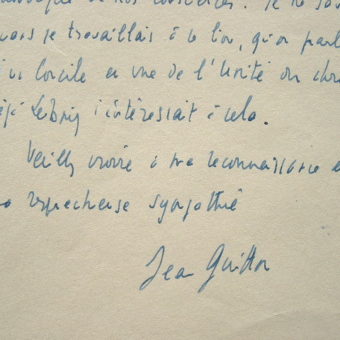 de nos consciences. Je ne sa
je travaillais à ce livre, qu'on parl
Concile en vue de l'Unité du chr
Leibniz s'intéressait à cela.
Veuillez croire à ma reconnaissance e
respectueuse sympathie
Jean Guitton